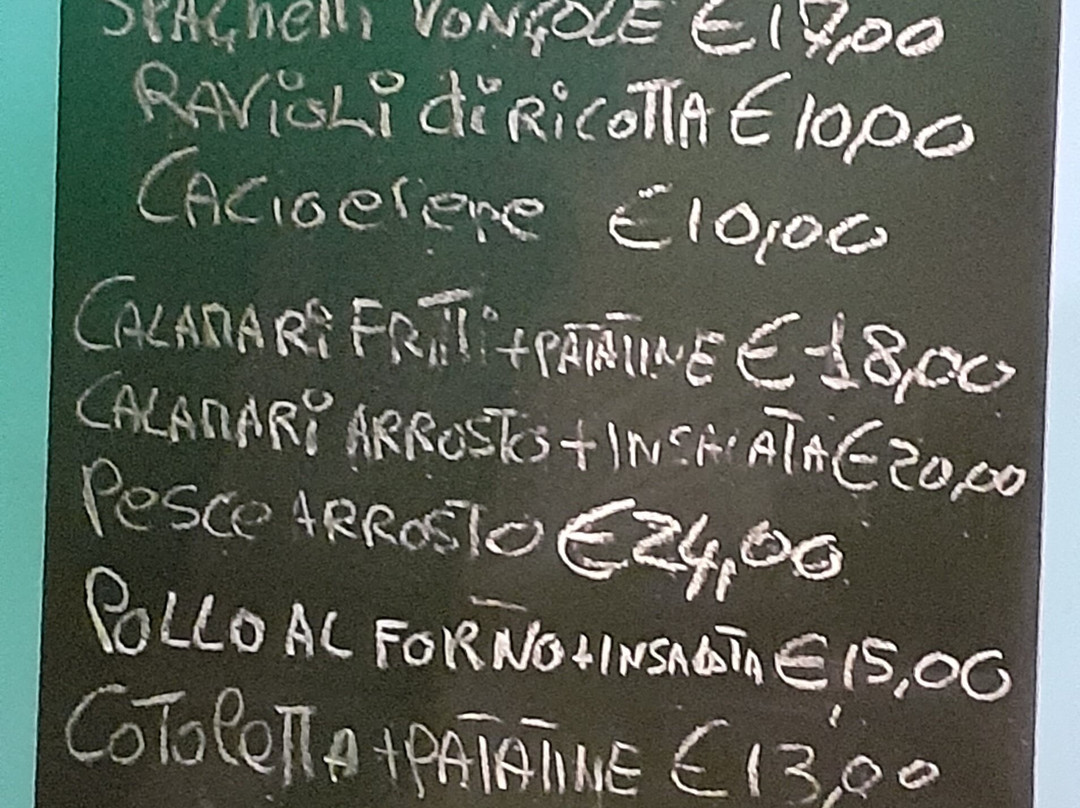 SPAGhetti VONGOLE €17,00
RAVIOLI di RICOTTA €10,00
CACIO e Pepe €10,00
CALAMARI FRITTI + PATATINE €18,00
CALAMARI ARROSTO + INSALATA €20,00
Pesce ARROSTO €24,00
POLLO AL FORNO + INSALATA €15,00
COTOLETTA + PATATINE €13,00